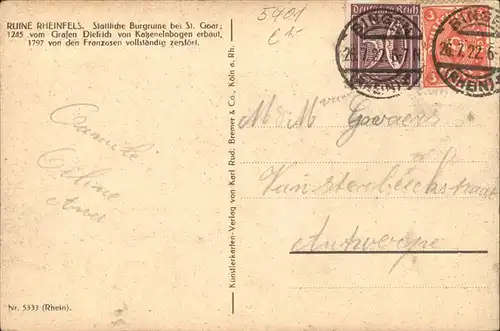 RUINE RHEINFELS. Stattliche Burgruine bei St. Goar;
1245 vom Grafen Dietrich von Katzenelnbogen erbaut,
1797 von den Franzosen vollständig zerstört.
5401
Deutsches Reich
BINGEN
(RHEIN)
BINGEN
26.7.22.6
(RHEIN)
3
3
M & M Govaers
Antwerpe
Camille
Céline
Künstlerkarten-Verlag von Karl Rud. Bremer & Co., Köln a. Rh.
Nr. 5333 (Rhein).